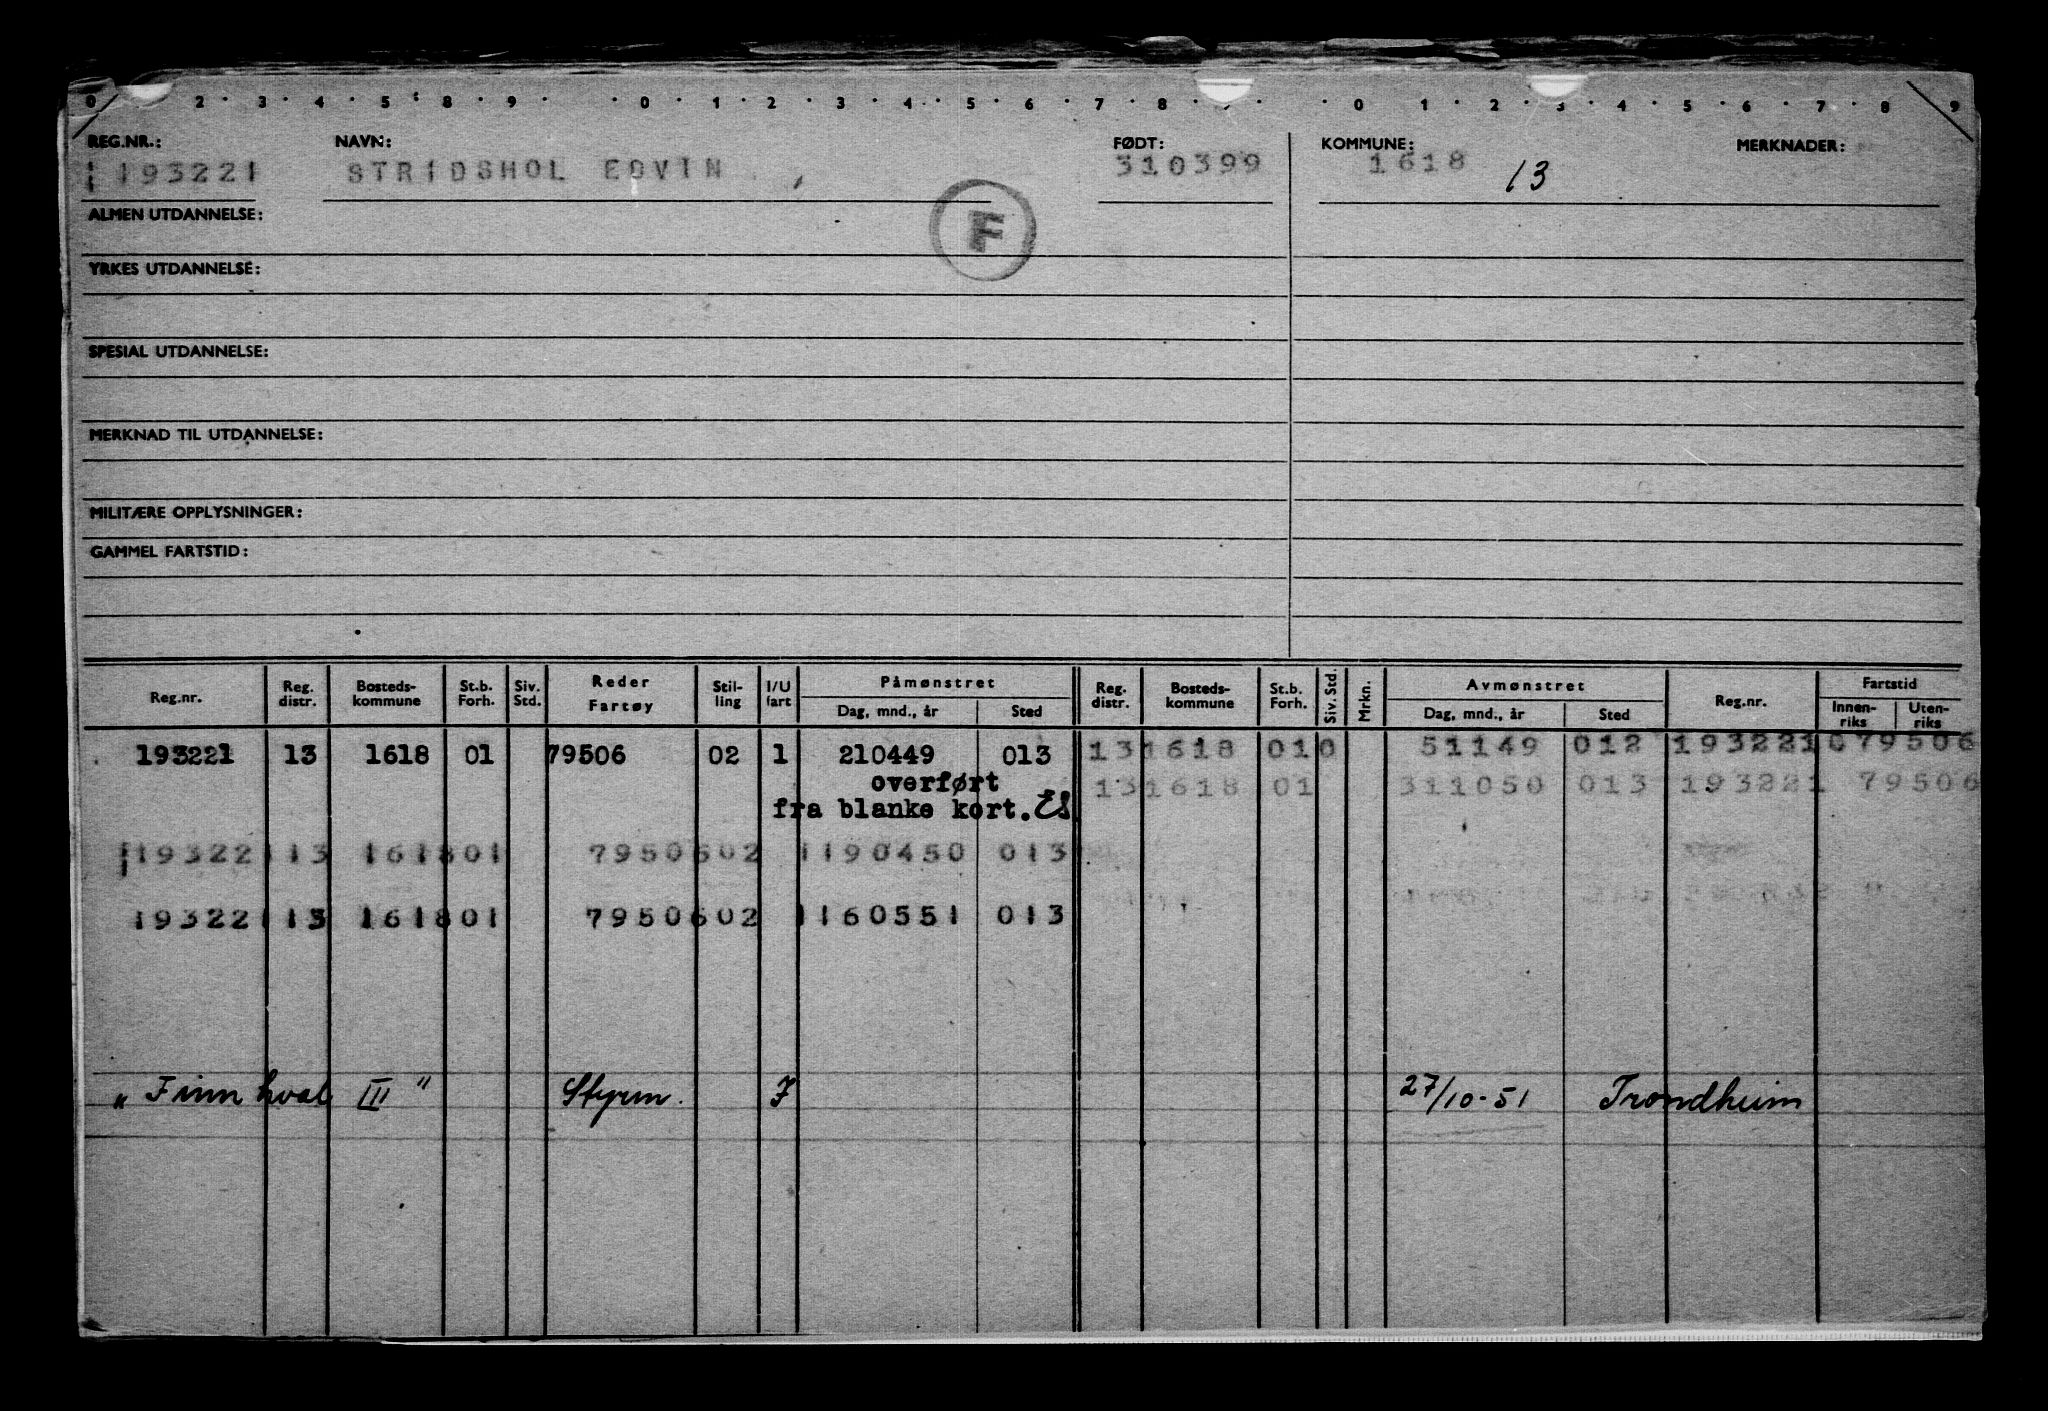 0 2 3 4 5 8 9 0 1 2 3 4 5 6 7 8 0 1 2 3 4 5 6 7 8 9
REG.NR.: NAVN: FØDT: KOMMUNE: MERKNADER:
193221 STRIDSHOL EDVIN 310399 1618 13
ALMEN UTDANNELSE:
F
YRKES UTDANNELSE:
SPESIAL UTDANNELSE:
MERKNAD TIL UTDANNELSE:
MILITÆRE OPPLYSNINGER:
GAMMEL FARTSTID:
Reg.nr. Reg. distr. Bosteds- kommune St.b. Forh. Siv. Std. Reder Fartøy Stil- ling I/U fart Påmønstret Dag, mnd., år Sted Reg. distr. Bosteds- kommune St.b. Forh. Siv. Std. Mrkn. Avmønstret Dag, mnd., år Sted Reg.nr. Fartstid Innen- riks Uten- riks
193221 13 1618 01 79506 02 1 210449 013 13 1618 01 0 51149 012 193221 0 79506
overført 13 1618 01 311050 013 193221 79506
fra blanke kort. ES
193221 13 1618 01 79506 02 1 190450 013
193221 13 1618 01 79506 02 1 160551 013
"Finnhval III" Styrm. I 27/10-51 Trondheim